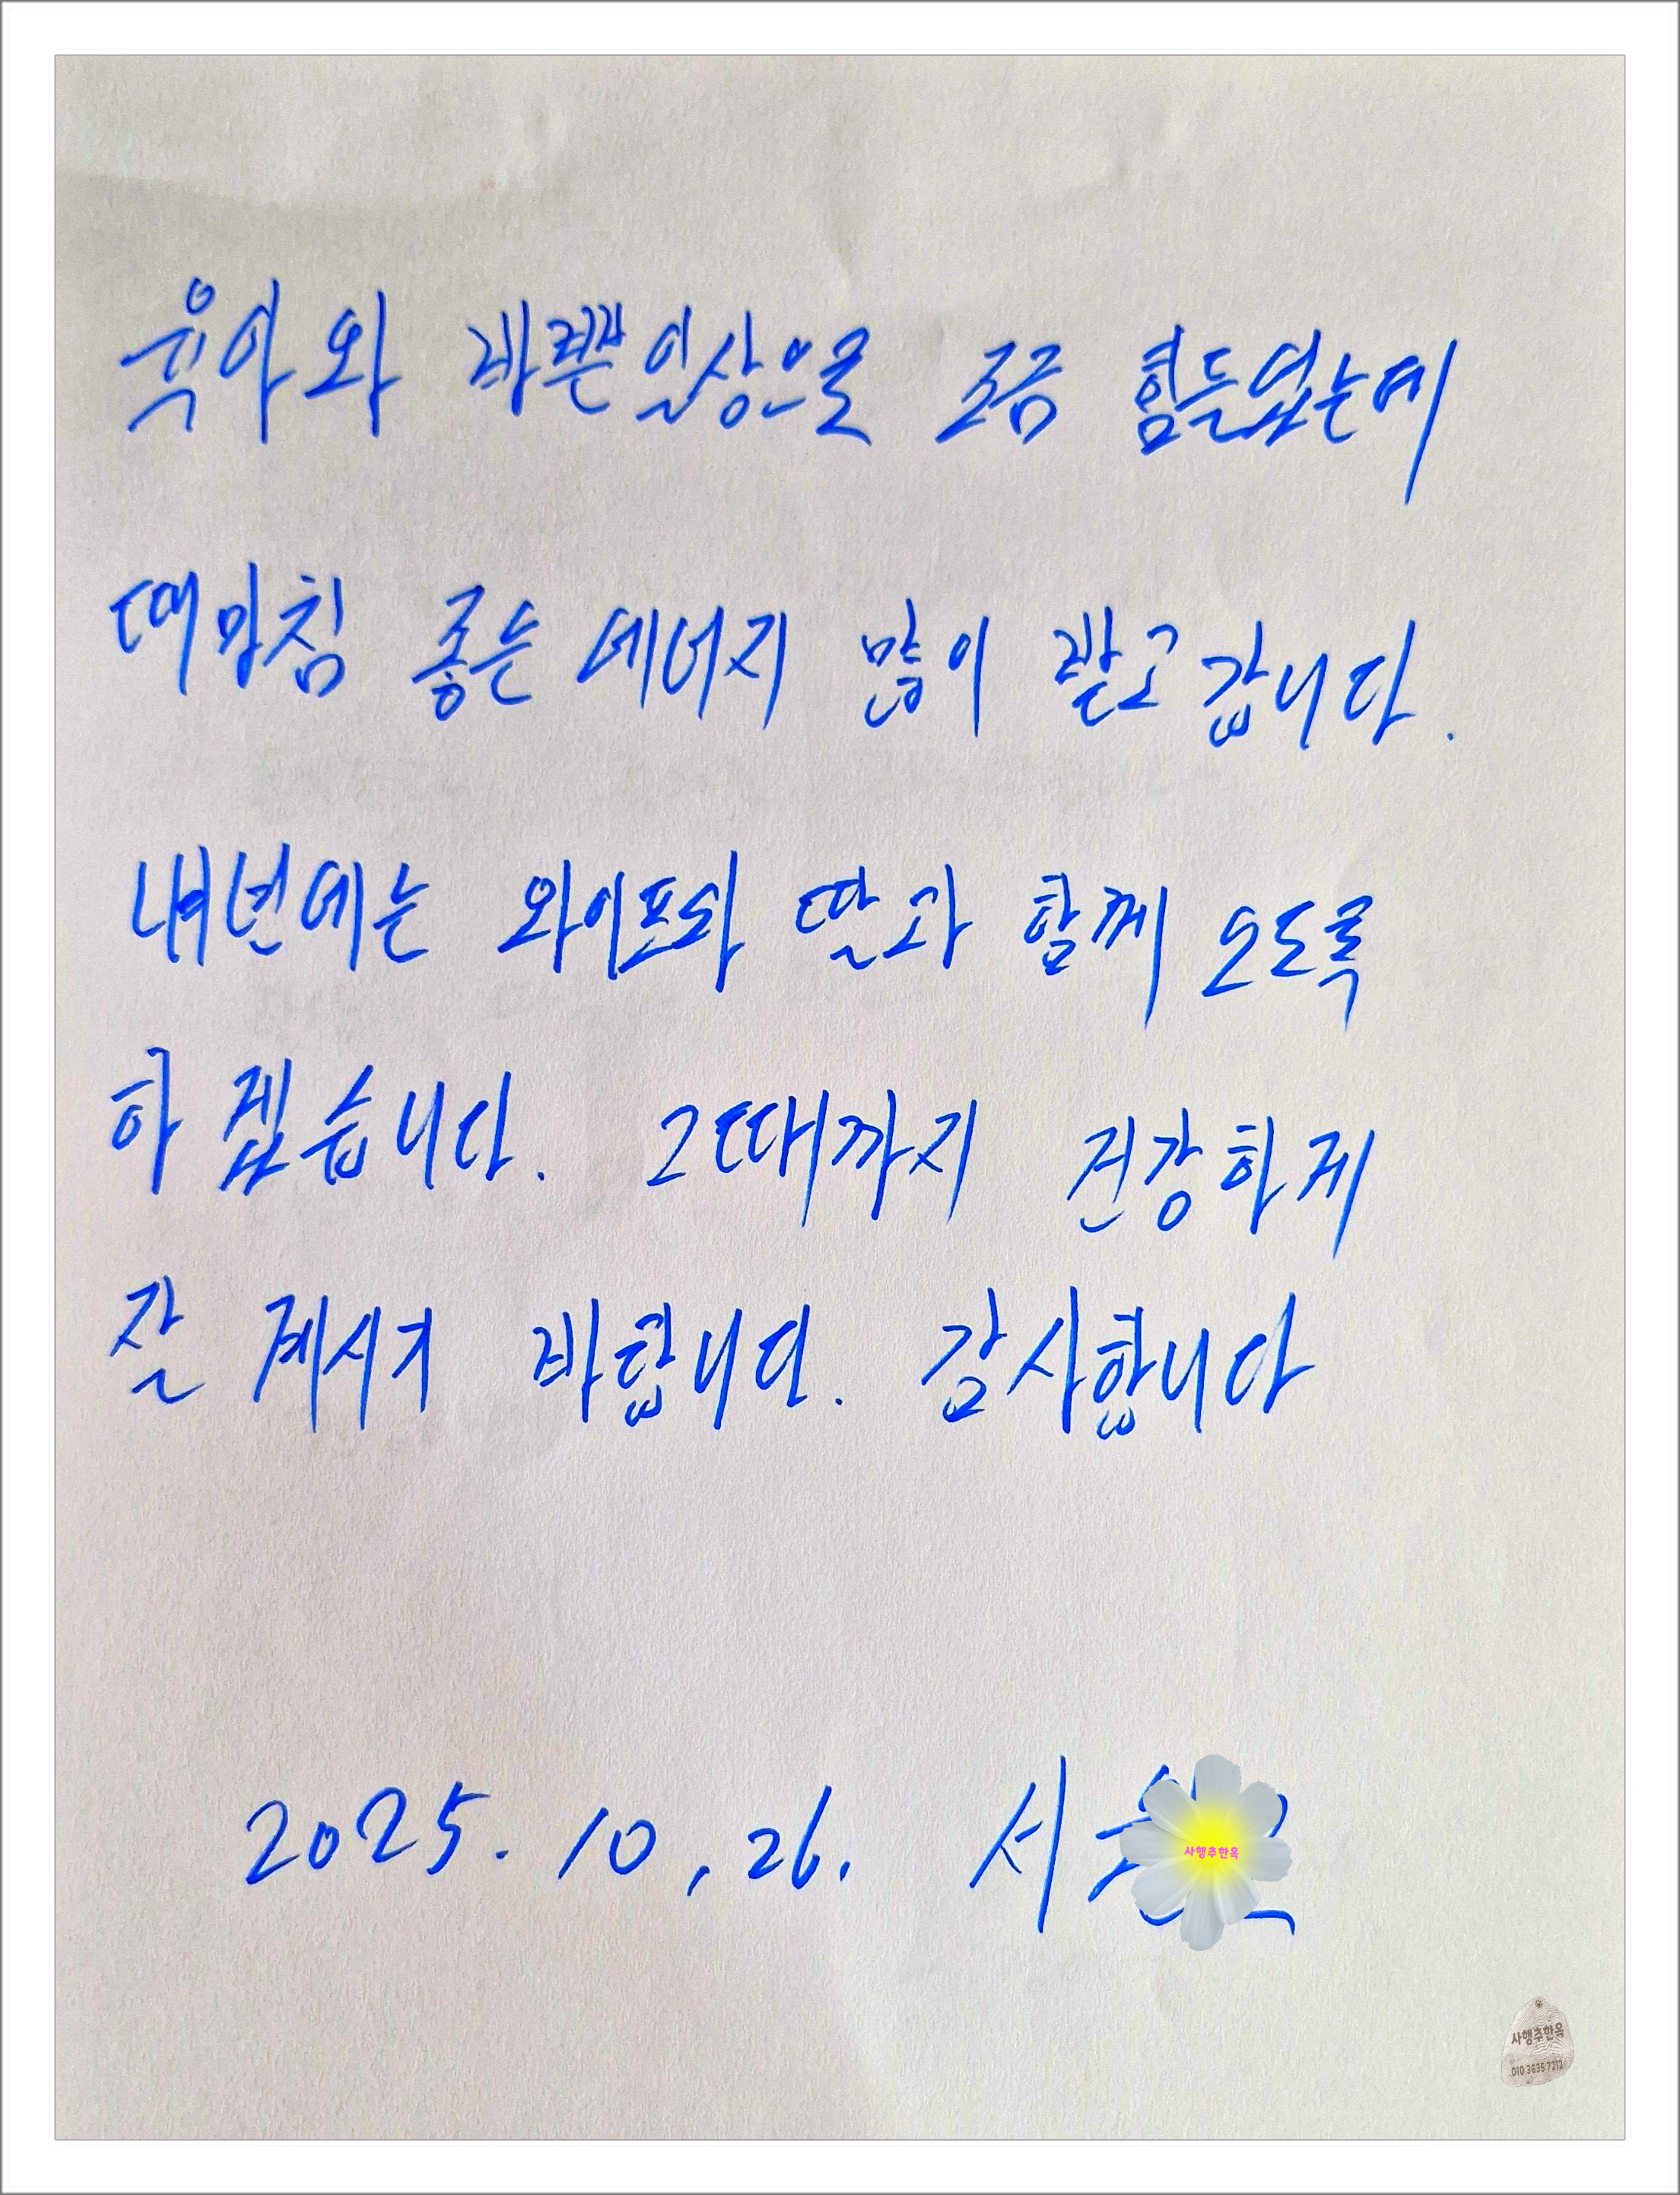 육아와 바쁜일상으로 조금 힘들었는데
때마침 좋은 에너지 많이 받고 갑니다.
내년에는 와이프와 딸과 함께 오도록
하겠습니다. 그때까지 건강하게
잘 계시기 바랍니다. 감사합니다
2025. 10, 26. 서
사행추한옥
사행추한옥
010 3635 7212